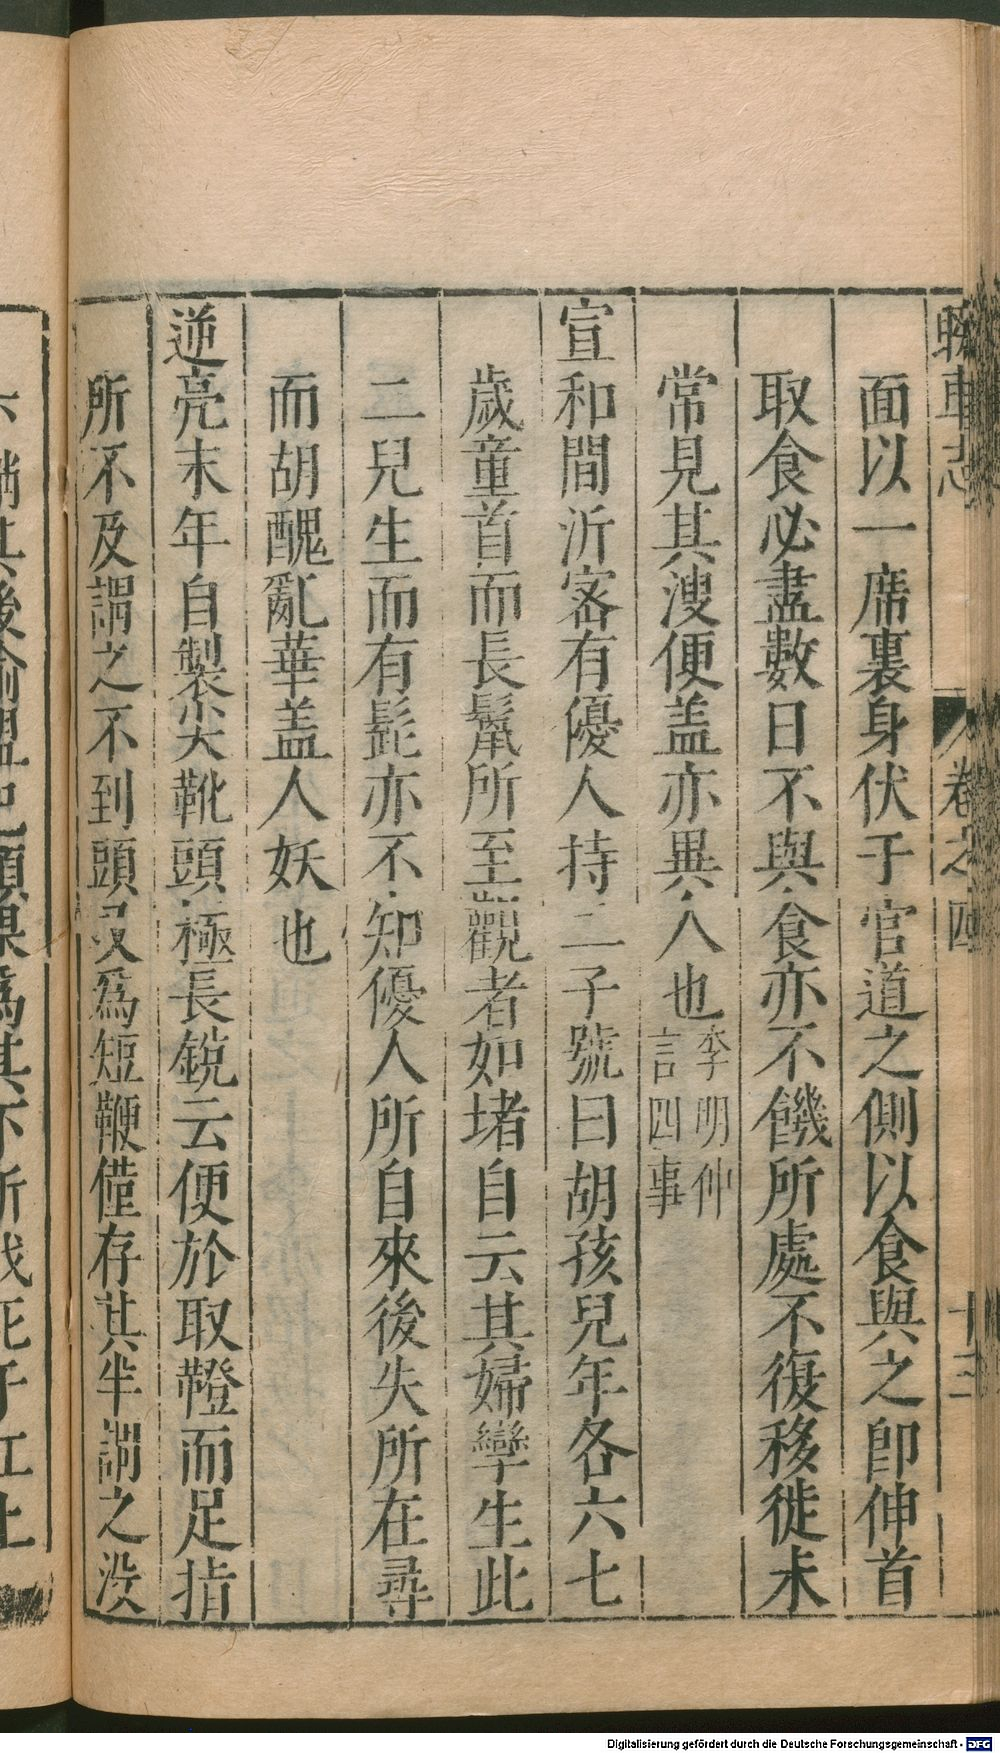 睽車志
卷之四
十三
面以一席裹身伏于官道之側以食與之卽伸首
取食必盡數日不與食亦不饑所處不復移徙未
常見其溲便盖亦異人也李明仲
言四事
宣和間沂密有優人持二子號曰胡孩兒年各六七
歲童首而長鬣所至觀者如堵自云其婦孿生此
二兒生而有髭亦不知優人所自來後失所在尋
而胡醜亂華盖人妖也
逆亮末年自製尖靴頭極長銳云便於取鞾而足指
所不及謂之不到頭又爲短鞭僅存其半謂之没
Digitalisierung gefördert durch die Deutsche Forschungsgemeinschaft - DFG